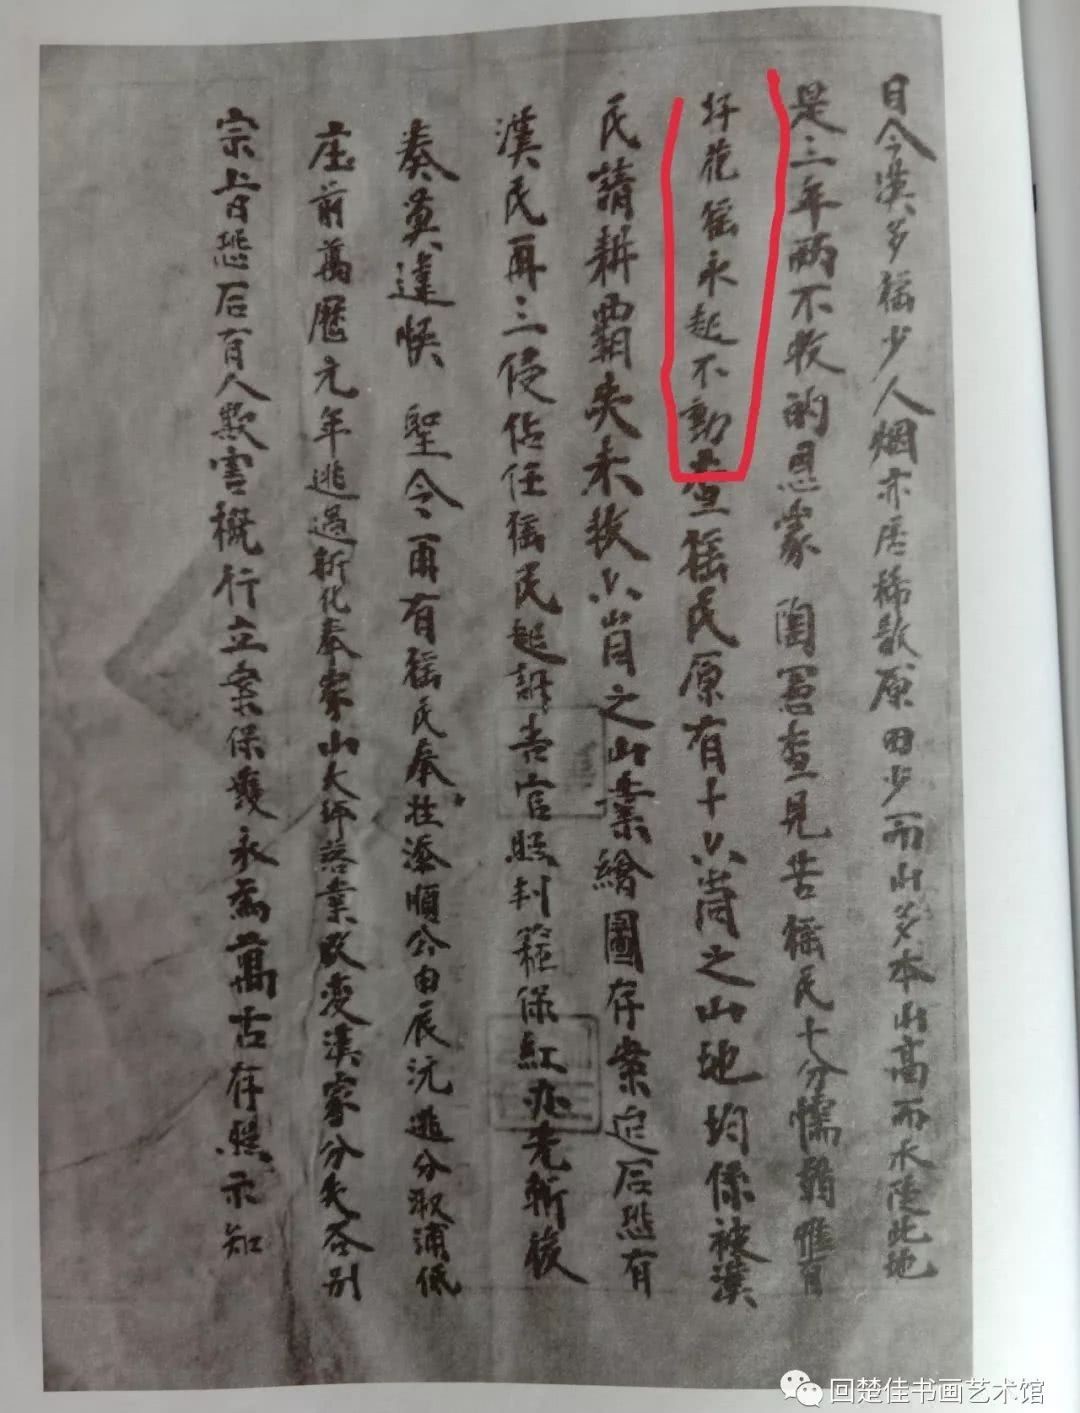 目今漢多猺少人烟亦居稀散原田少而山多本山高而水陡此地
是三年两不收的恩蒙 陶憲查見苦猺民十分懦弱惟有
圩花猺永起不動查猺民原有十六峝之山地均係被漢
民請耕霸失未救六峝之山業繪圖存案定后恐有
漢民再三侵佔任猺民起訴告官照判 保紅 先斬後
奏莫違悞 聖令再有猺民奉 添順公由辰沅逃分溆浦低
庄前萬歷元年逃過新化奉家山大坪落業改变漢家分失各别
宗旨恐后有人欺害概行立案保護永為萬古存照示知
回楚佳书画艺术馆